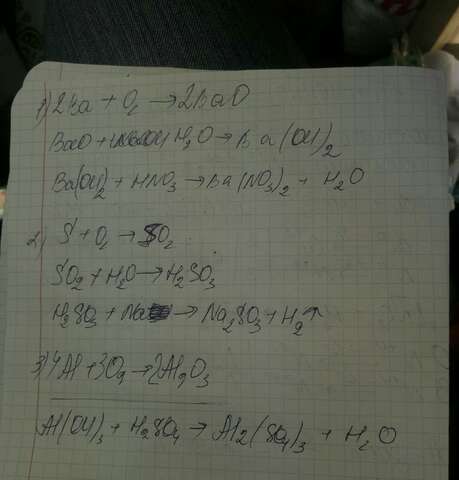 1) 2Ba + O₂ → 2BaO
BaO + H₂O → Ba(OH)₂
Ba(OH)₂ + HNO₃ → Ba(NO₃)₂ + H₂O
2) S + O₂ → SO₂
SO₂ + H₂O → H₂SO₃
H₂SO₃ + Na → Na₂SO₃ + H₂↑
3) 4Al + 3O₂ → 2Al₂O₃
Al(OH)₃ + H₂SO₄ → Al₂(SO₄)₃ + H₂O